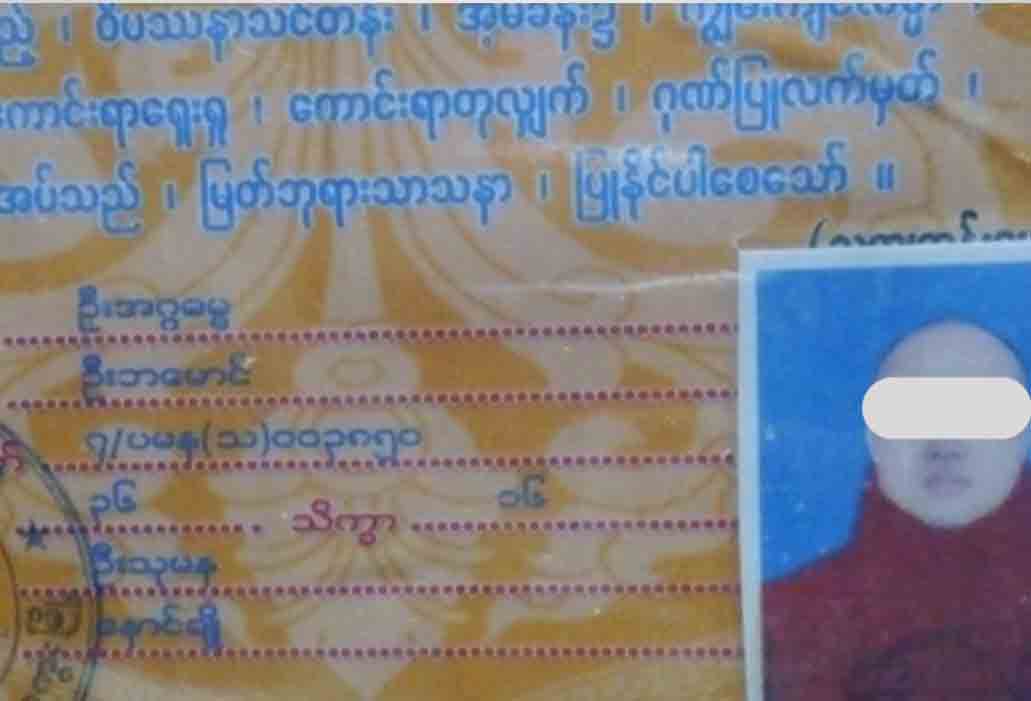 ည့် ၊ ဝိပဿနာသင်တန်း ၊
ကောင်းရာရှေးရှု ၊ ကောင်းရာတုလျှက် ၊ ဂုဏ်ပြုလက်မှတ် ၊
အပ်သည် ၊ မြတ်ဘုရားသာသနာ ၊ ပြုနိုင်ပါစေသော် ။
ဦးအဂ္ဂဓမ္မ
ဦးဘမောင်
၇/ပမန(သ)၀၀၃၈၅၀
၃၆ သိက္ခာ ၁၆
ဦးသုမန
နောင်ချို